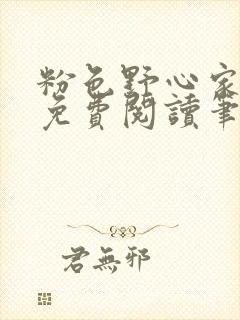 粉色野心家
免費閱讀筆
君無邪